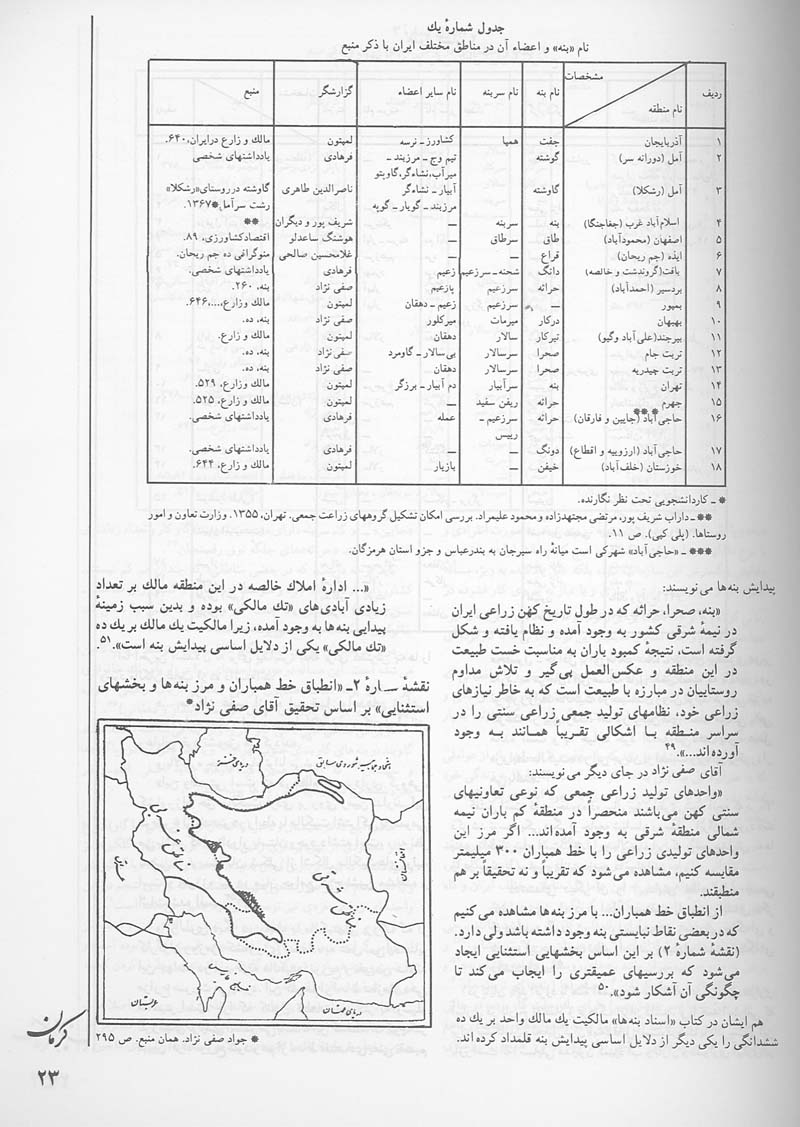 جدول شمارهٔ یك
نام «بنه» و اعضاء آن در مناطق مختلف ایران با ذکر منبع
ردیف مشخصات نام منطقه نام بنه نام سربنه نام سایر اعضاء گزارشگر منبع
۱ آذربایجان جفت همپا کشاورز ـ نرسه لمپتون مالك و زارع درایران، ۶۴۰.
۲ آمل (دورانه سر) گوشته تیم وج ـ مرزبند ـ فرهادی یادداشتهای شخصی
میرآب، نشاءگر، گاوبتو
۳ آمل (رشکلا) گاوشته آبیار ـ نشاءگر ناصرالدین طاهری گاوشته درروستای«رشکلا»
مرزبند ـ گویار ـ گوپه رشت سرآمل* ۱۳۶۷.
۴ اسلام‌آباد غرب (جفاجنگا) بنه سربنه — شریف پور و دیگران **
۵ اصفهان (محمودآباد) طاق سرطاق — هوشنگ ساعدلو اقتصادکشاورزی، ۸۹.
۶ ایذه (جم ریحان) قراع — — غلامحسین صالحی منوگرافی ده جم ریحان.
۷ بافت(گروندشت و خالصه) دانگ شحنه ـ سرزعیم زعیم فرهادی یادداشتهای شخصی.
۸ بردسیر (احمدآباد) حراثه سرزعیم پازعیم صفی نژاد بنه، ۲۶۰.
۹ بمپور — سرزعیم زعیم ـ دهقان لمپتون مالك وزارع،...، ۶۴۶.
۱۰ بهبهان درکار میرمات میرکلور صفی نژاد بنه، ده.
۱۱ بیرجند(علی آباد وگیو) تیرکار سالار دهقان لمپتون مالك و زارع.
۱۲ تربت جام صحرا سرسالار بی‌سالار ـ گاومرد صفی نژاد بنه، ده.
۱۳ تربت حیدریه صحرا سرسالار دهقان صفی نژاد بنه، ده.
۱۴ تهران بنه سرآبیار دم آبیار ـ برزگر لمپتون مالك و زارع، ۵۲۹.
۱۵ جهرم حراثه ریفن سفید — لمپتون مالك و زارع، ۵۲۵.
۱۶ حاجی آباد*** (جایین و فارقان) حراثه سرزعیم ـ عمله فرهادی یادداشتهای شخصی.
رییس
۱۷ حاجی آباد (ارزوییه و اقطاع) دونگ — — فرهادی یادداشتهای شخصی.
۱۸ خوزستان (خلف‌آباد) خیفن — بازیار لمپتون مالك و زارع، ۶۴۴.
* ـ کاردانشجویی تحت نظر نگارنده.
** ـ داراب شریف پور، مرتضی مجتهدزاده و محمود علیمراد. بررسی امکان تشکیل گروههای زراعت جمعی. تهران، ۱۳۵۵. وزارت تعاون و امور
روستاها. (پلی کپی). ص ۱۱.
*** ـ «حاجی آباد» شهرکی است میانهٔ راه سیرجان به بندرعباس و جزو استان هرمزگان.
پیدایش بنه‌ها می‌نویسند:
«بنه، صحرا، حراثه که در طول تاریخ کهن زراعی ایران
در نیمهٔ شرقی کشور به وجود آمده و نظام یافته و شکل
گرفته است، نتیجهٔ کمبود باران به مناسبت خست طبیعت
در این منطقه و عکس‌العمل پی‌گیر و تلاش مداوم
روستاییان در مبارزه با طبیعت است که به خاطر نیازهای
زراعی خود، نظامهای تولید جمعی زراعی سنتی را در
سراسر منطقه بـا اشکالی تقریباً همانند به وجود
آورده‌اند...».۴۹
آقای صفی نژاد در جای دیگر می‌نویسند:
«واحدهای تولید زراعی جمعی که نوعی تعاونیهای
سنتی کهن می‌باشند منحصراً در منطقهٔ کم باران نیمه
شمالی منطقهٔ شرقی به وجود آمده‌اند... اگر مرز این
واحدهای تولیدی زراعی را با خط همباران ۳۰۰ میلیمتر
مقایسه کنیم، مشاهده می‌شود که تقریباً و نه تحقیقاً بر هم
منطبقند.
از انطباق خط همباران... با مرز بنه‌ها مشاهده می کنیم
که در بعضی نقاط نبایستی بنه وجود داشته باشد ولی دارد.
(نقشهٔ شمارهٔ ۲) بر این اساس بخشهایی استثنایی ایجاد
می‌شود که بررسیهای عمیقتری را ایجاب می‌کند تا
چگونگی آن آشکار شود».۵۰
هم ایشان در کتاب «اسناد بنه‌ها» مالکیت یك مالك واحد بر یك ده
ششدانگی را یکی دیگر از دلایل اساسی پیدایش بنه قلمداد کرده‌اند.
«... ادارهٔ املاك خالصه در این منطقه مالك بر تعداد
زیادی آبادی‌های «تك مالکی» بوده و بدین سبب زمینهٔ
پیدایی بنه‌ها به وجود آمده، زیرا مالکیت یك مالك بر یك ده
«تك مالکی» یکی از دلایل اساسی پیدایش بنه است».۵۱
نقشهٔ ـــارهٔ ۲ـ «انطباق خط همباران و مرز بنه‌ها و بخشهای
استثنایی» بر اساس تحقیق آقای صفی نژاد*
دریای خزر
افغانستان
عربستان
دریای عمان
* جواد صفی نژاد. همان منبع. ص ۲۹۵
کرمان
۲۳